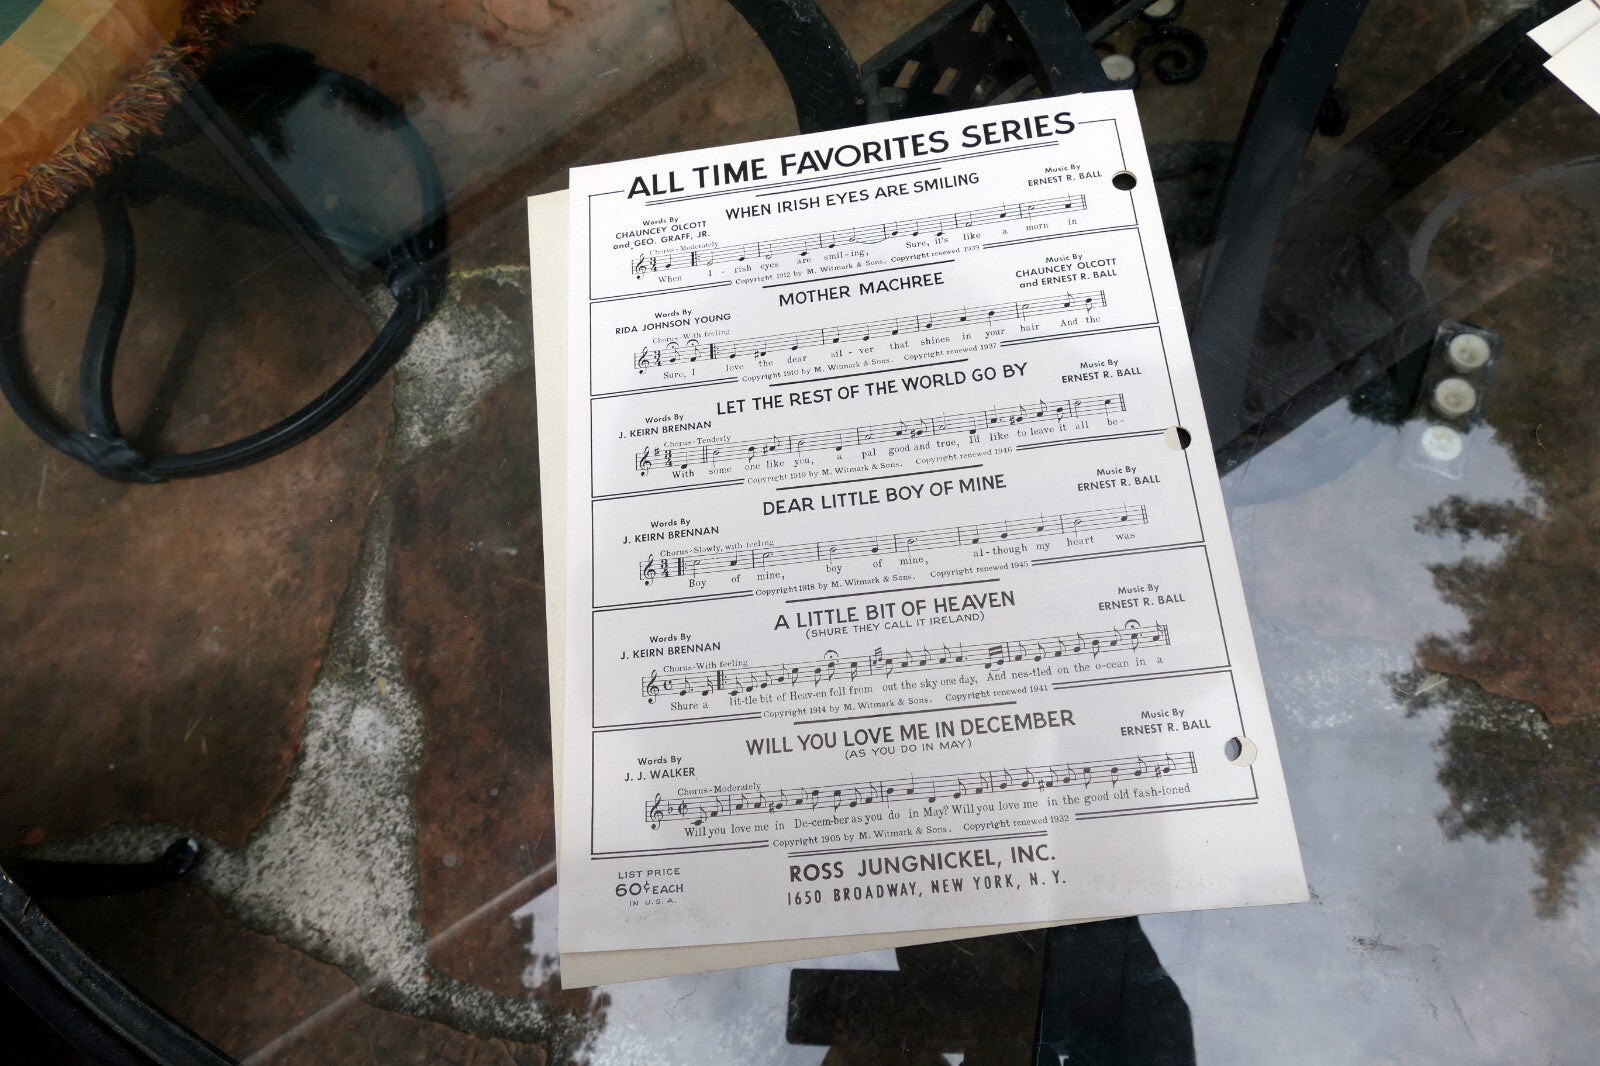 ALL TIME FAVORITES SERIES
WHEN IRISH EYES ARE SMILING
Words By
CHAUNCEY OLCOTT
and GEO. GRAFF, JR.
Music By
ERNEST R. BALL
Chorus-Moderately
When I - rish eyes are smil-ing, Sure, it's like a morn in
Copyright 1912 by M. Witmark & Sons. Copyright renewed 1939
MOTHER MACHREE
Words By
RIDA JOHNSON YOUNG
Music By
CHAUNCEY OLCOTT
and ERNEST R. BALL
Chorus-With feeling
Sure, I love the dear sil - ver that shines in your hair And the
Copyright 1910 by M. Witmark & Sons. Copyright renewed 1937
LET THE REST OF THE WORLD GO BY
Words By
J. KEIRN BRENNAN
Music By
ERNEST R. BALL
Chorus-Tenderly
With some one like you, a pal good and true, I'd like to leave it all be-
Copyright 1919 by M. Witmark & Sons. Copyright renewed 1946
DEAR LITTLE BOY OF MINE
Words By
J. KEIRN BRENNAN
Music By
ERNEST R. BALL
Chorus-Slowly, with feeling
Boy of mine, boy of mine, al-though my heart was
Copyright 1918 by M. Witmark & Sons. Copyright renewed 1945
A LITTLE BIT OF HEAVEN
(SHURE THEY CALL IT IRELAND)
Words By
J. KEIRN BRENNAN
Music By
ERNEST R. BALL
Chorus-With feeling
Shure a lit-tle bit of Heav-en fell from out the sky one day, And nes-tled on the o-cean in a
Copyright 1914 by M. Witmark & Sons. Copyright renewed 1941
WILL YOU LOVE ME IN DECEMBER
(AS YOU DO IN MAY)
Words By
J. J. WALKER
Music By
ERNEST R. BALL
Chorus-Moderately
Will you love me in De-cem-ber as you do in May? Will you love me in the good old fash-ioned
Copyright 1905 by M. Witmark & Sons. Copyright renewed 1932
LIST PRICE
60¢ EACH
IN U.S.A.
ROSS JUNGNICKEL, INC.
1650 BROADWAY, NEW YORK, N. Y.